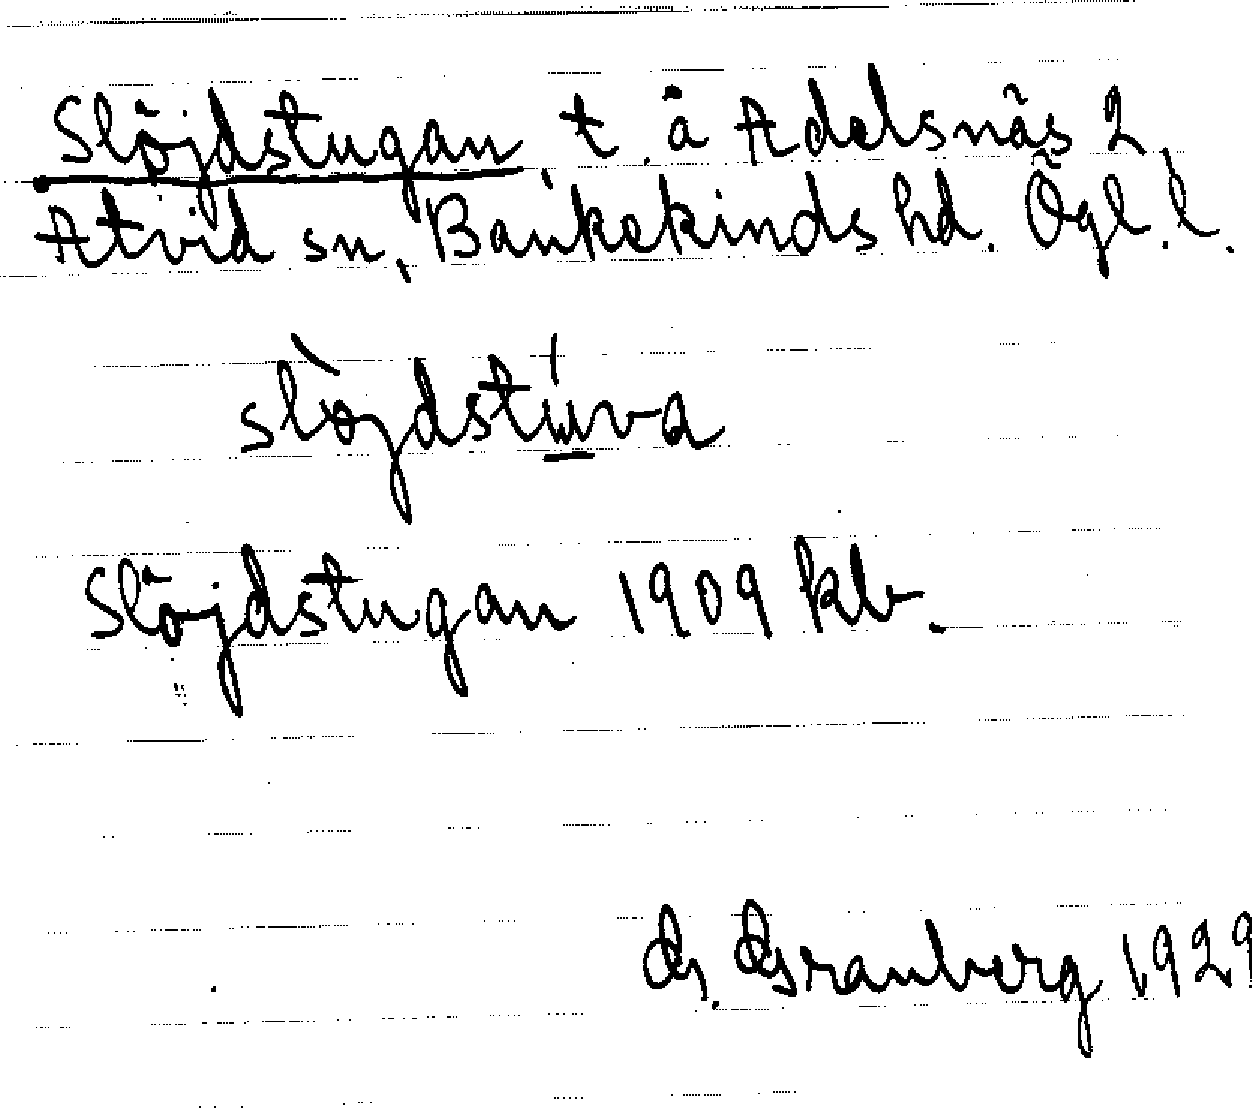 Slöjdstugan t. å Adelsnäs 2
Åtvid sn, Bankekinds hd. Ögl. l.
slòjdstúva
Slöjdstugan 1909 kb.
G. Granberg 1929